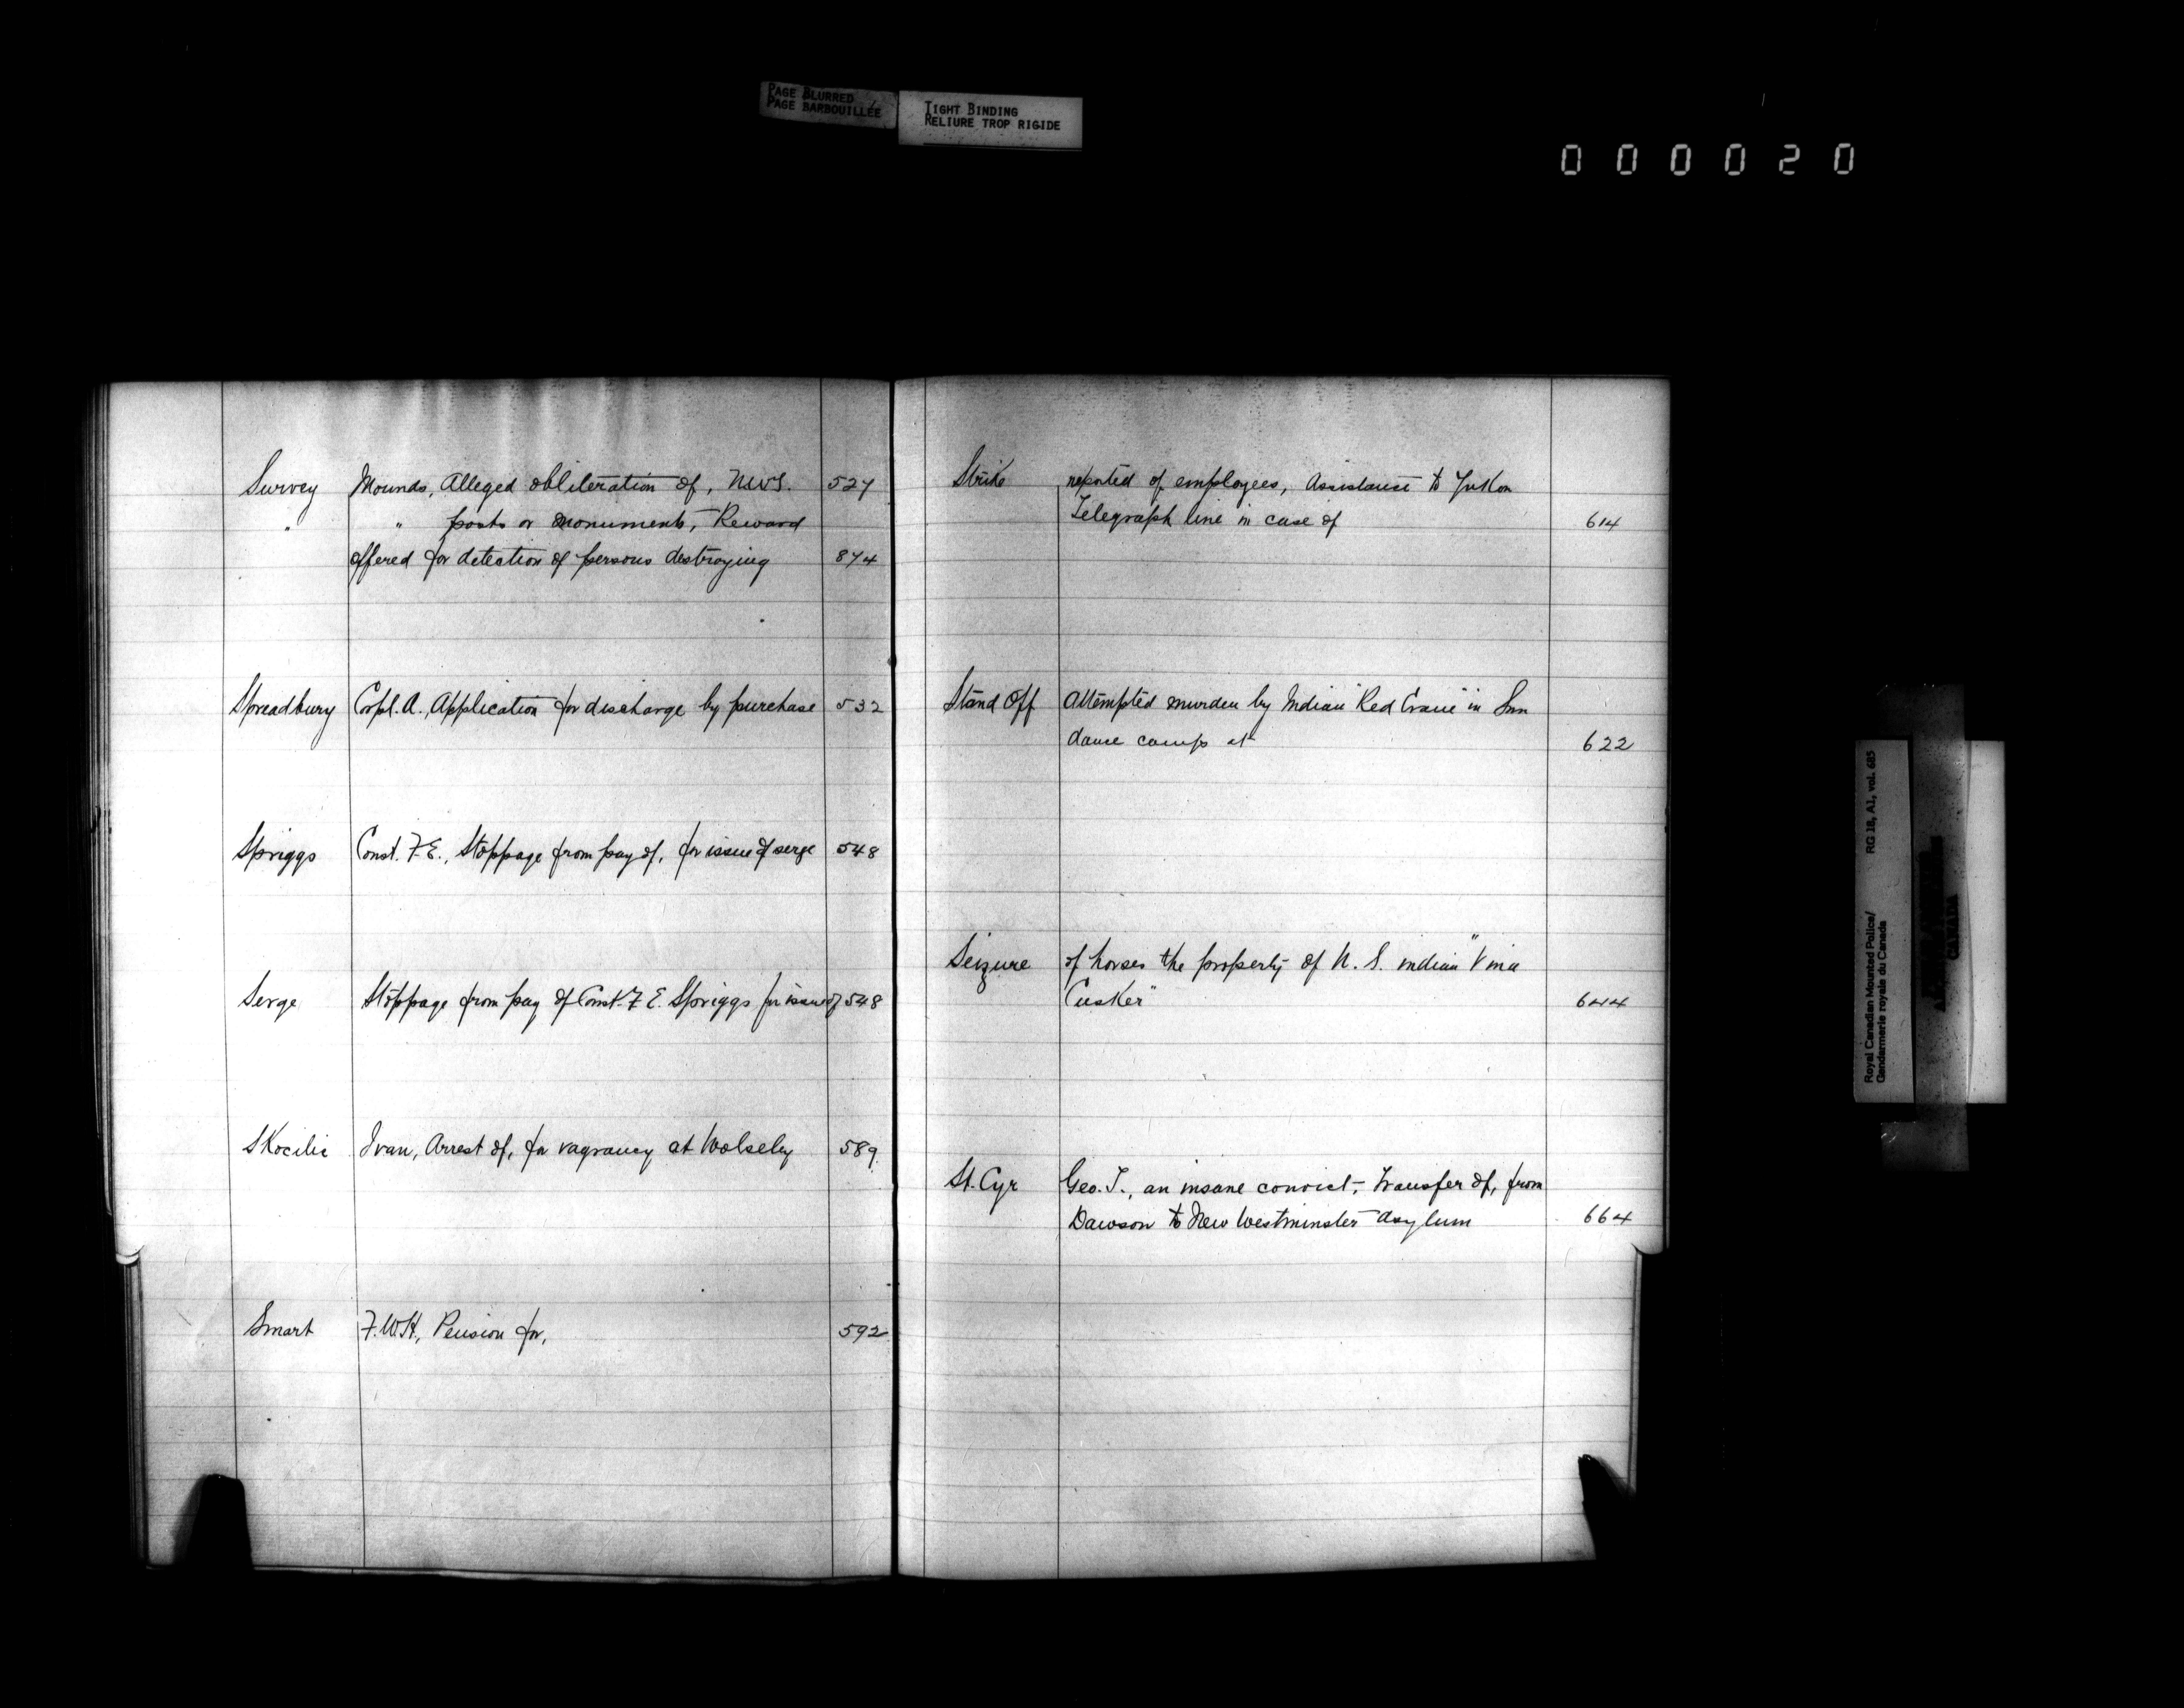 PAGE BLURRED
PAGE BARBOUILLÉE
TIGHT BINDING
RELIURE TROP RIGIDE
000020
Survey Mounds, Alleged obliteration of, NWT. 527
" " posts or monuments, Reward
offered for detection of persons destroying 874
Spreadbury Corpl. A., Application for discharge by purchase 532
Spriggs Const. F. E., Stoppage from pay of, for issue of serge 548
Serge Stoppage from pay of Const. F. E. Spriggs for issue of 548
Skocilic Ivan, Arrest of, for vagrancy at Wolseley 589
Smart F. W. H., Pension for, 592
Strike reported of employees, Assistance to Yukon
Telegraph line in case of 614
Stand Off Attempted murder by Indian "Red Crane" in Sun
dance camp at 622
Seizure of horses the property of U. S. indian
Cusker" 644
St. Cyr Geo. T., an insane convict, Transfer of, from
Dawson to New Westminster Asylum 664
Royal Canadian Mounted Police/ RG 18, A1, vol. 685
Gendarmerie royale du Canada
CANADA